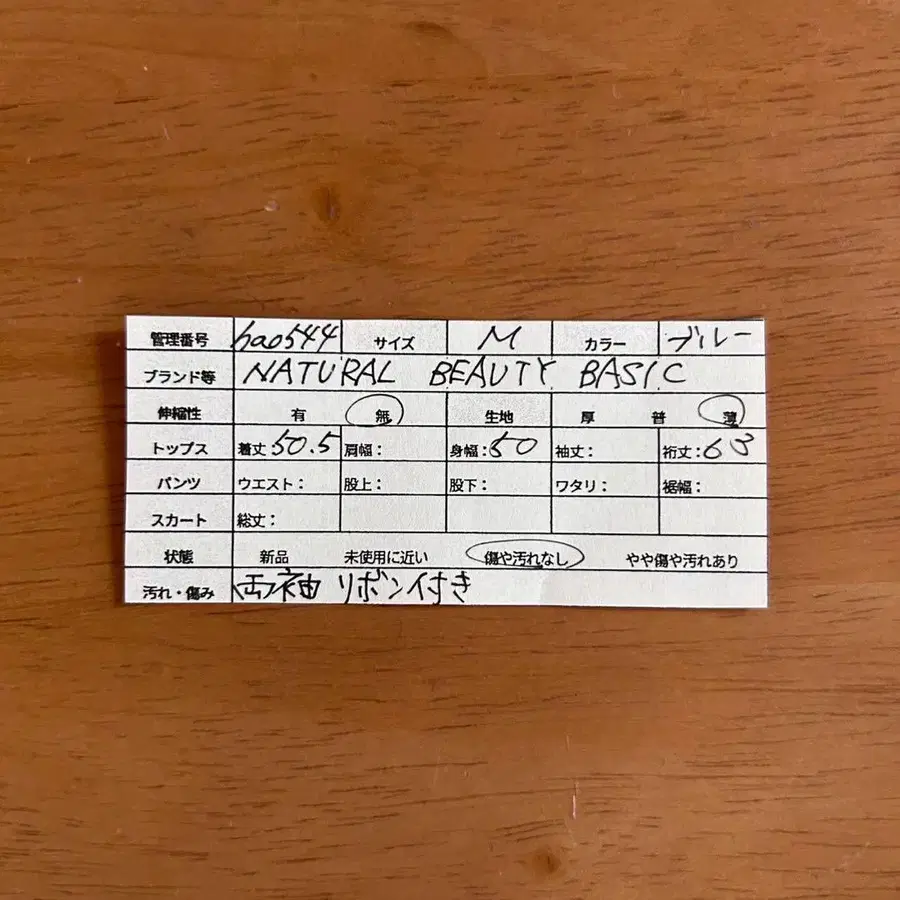 管理番号 hao544 サイズ M カラー ブルー
ブランド等 NATURAL BEAUTY BASIC
伸縮性 有 無 生地 厚 普 薄
トップス 着丈 50.5 肩幅: 身幅: 50 袖丈: 裄丈: 63
パンツ ウエスト: 股上: 股下: ワタリ: 裾幅:
スカート 総丈:
状態 新品 未使用に近い 傷や汚れなし やや傷や汚れあり
汚れ・傷み 両袖 リボン付き